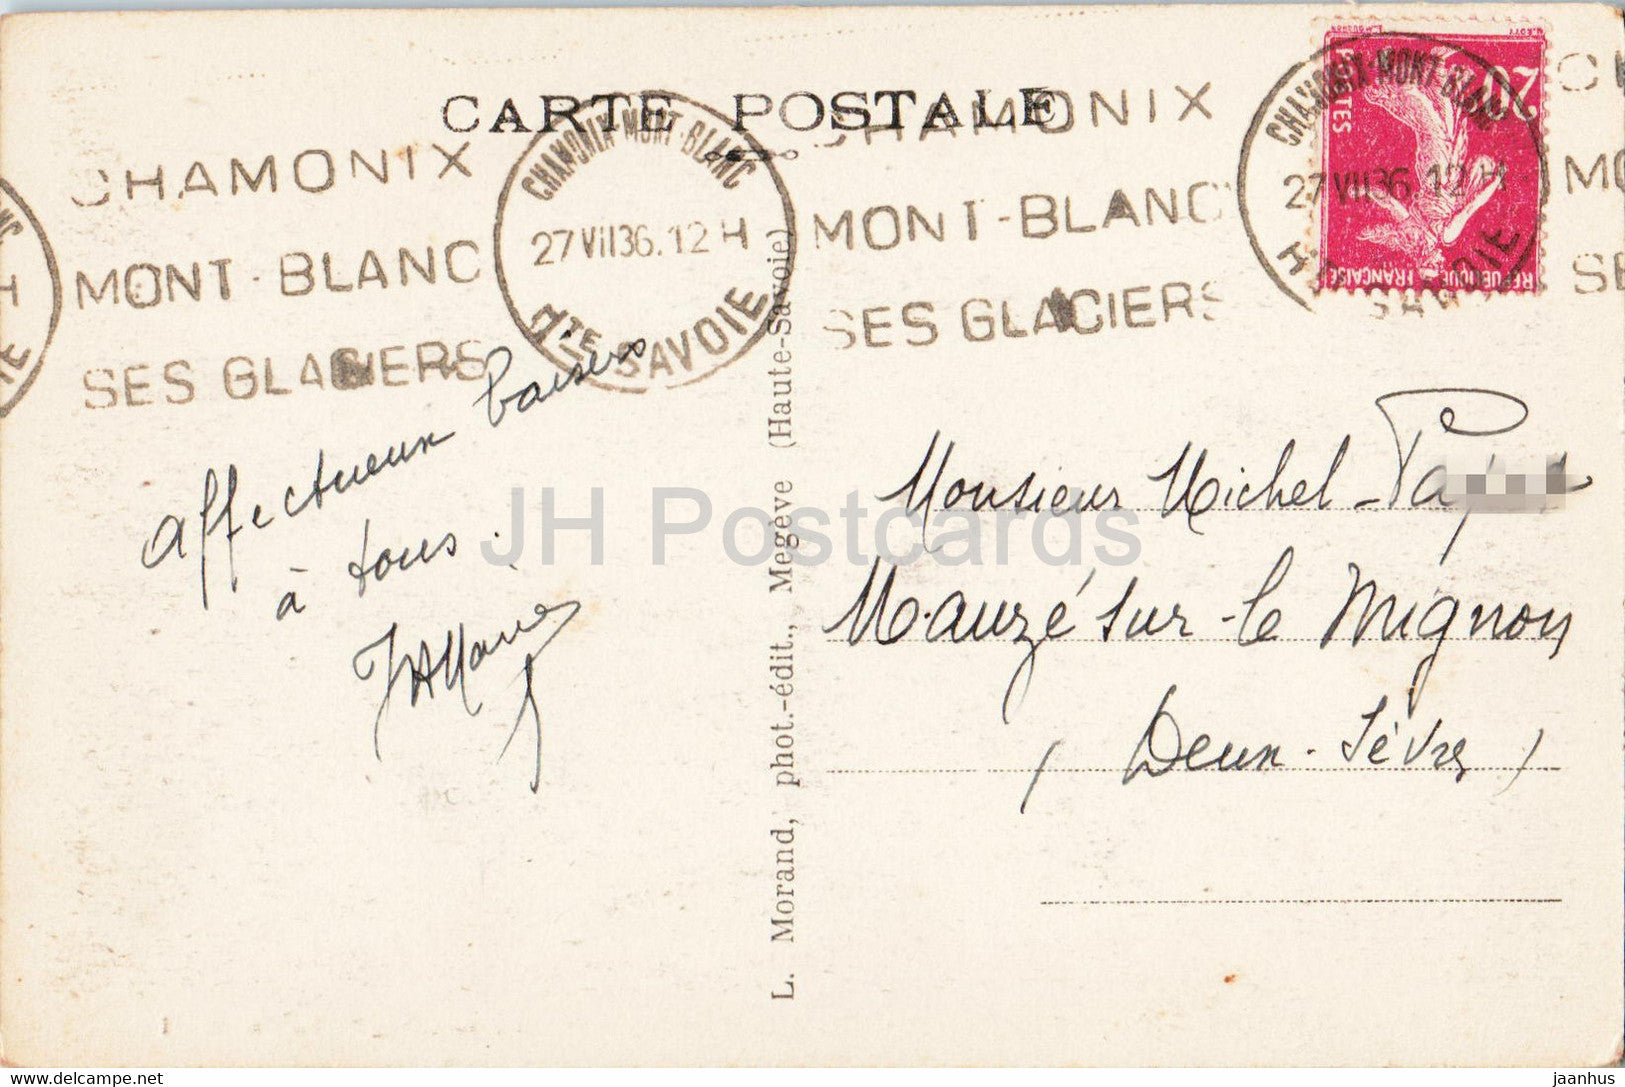 CARTE POSTALE
CHAMONIX
MONT-BLANC
SES GLACIERS
CHAMONIX-MONT-BLANC
27 VII 36. 12 H
HTE SAVOIE
CHAMONIX
MONT-BLANC
SES GLACIERS
CHAMONIX-MONT-BLANC
27 VII 36. 12 H
HTE SAVOIE
20
POSTES
REPUBLIQUE FRANÇAISE
Affectueux baisers
à tous.
L. Morand, phot.-édit., Megève (Haute-Savoie)
Monsieur Michel
Mauzé sur-le Mignon
(Deux-Sèvres)
JH Postcards
jaanhus - delcampe.net